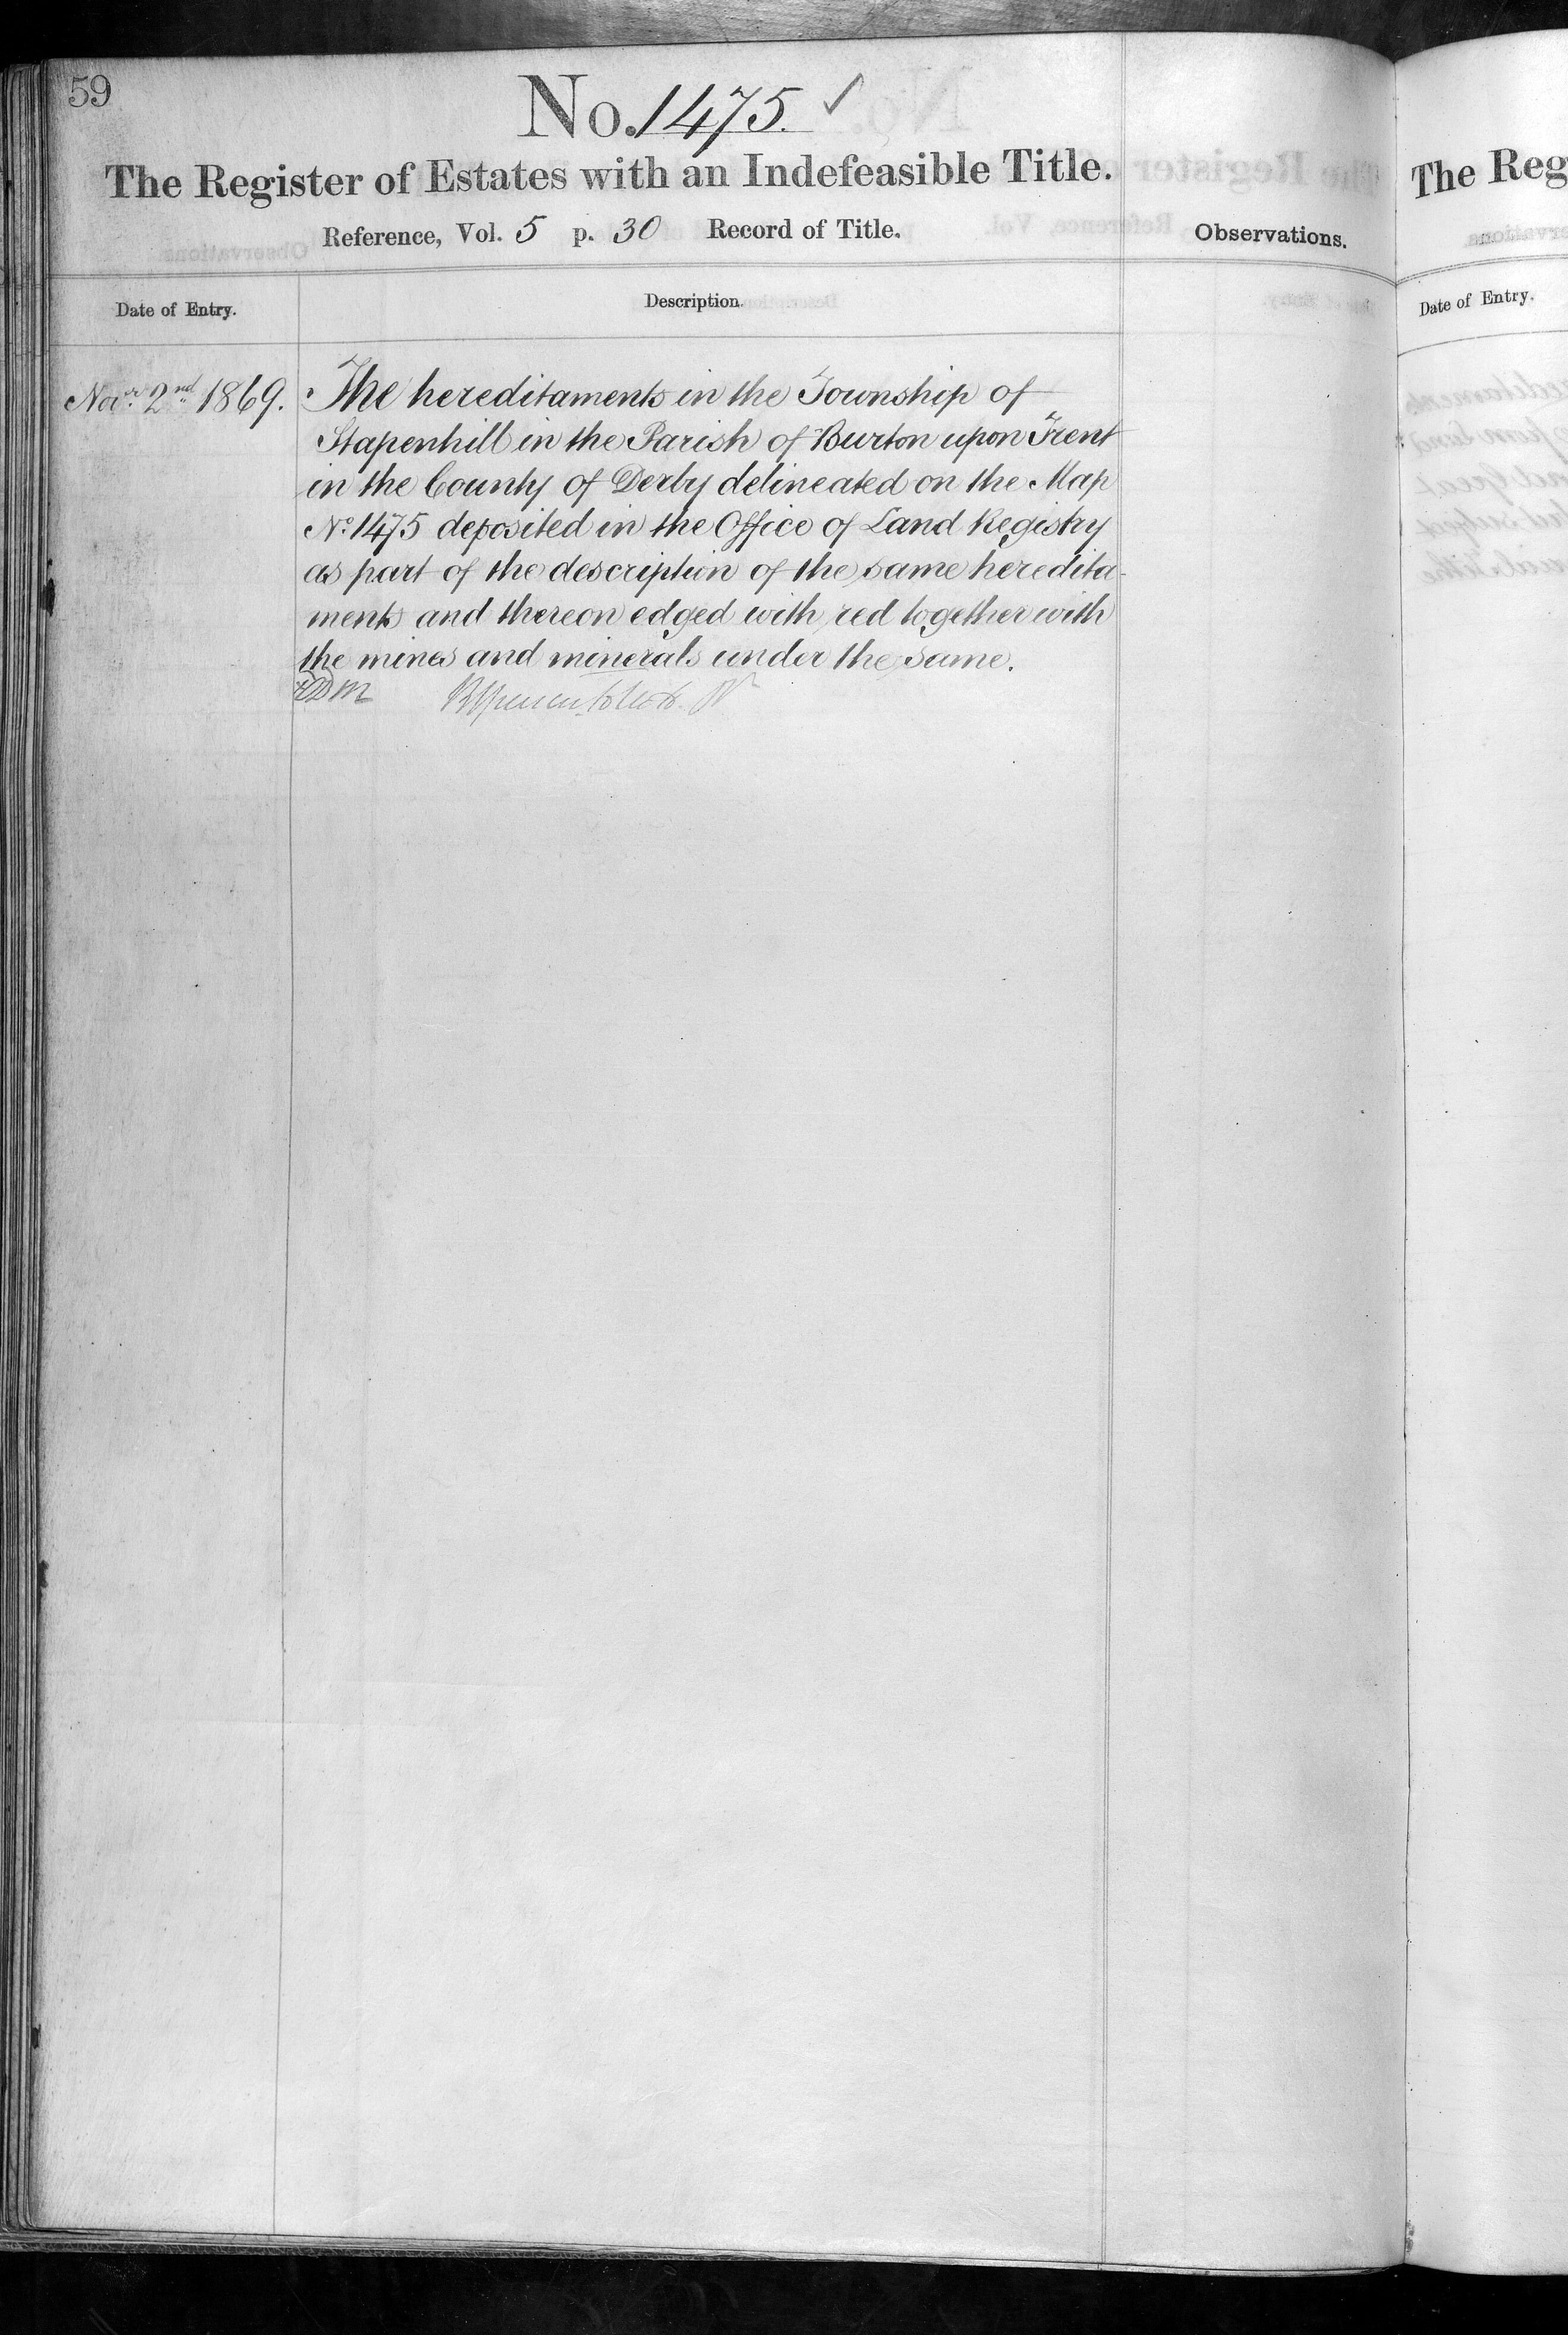 59
No. 1475. ✓
The Register of Estates with an Indefeasible Title.
Reference, Vol. 5 p. 30 Record of Title.
Observations.
Date of Entry.
Description.
Novr. 2nd 1869.
The hereditaments in the Township of
Stapenhill in the Parish of Burton upon Trent
in the County of Derby delineated on the Map
No. 1475 deposited in the Office of Land Registry
as part of the description of the same heredita-
ments and thereon edged with red together with
the mines and minerals under the same.
The Reg
Date of Entry.